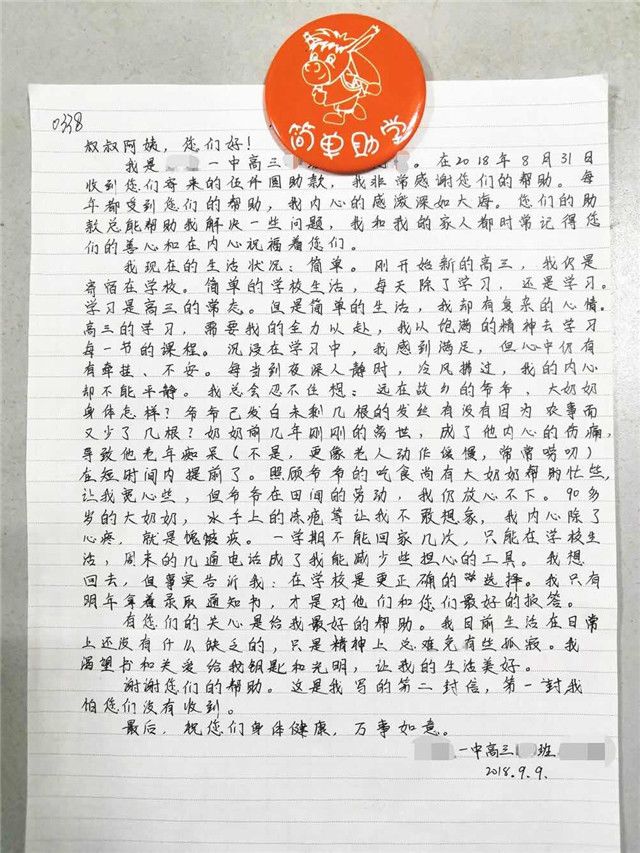 简单助学
0338
叔叔阿姨，您们好！
我是 一中高三 。在2018年8月31日
收到您们寄来的伍件圆助款，我非常感谢您们的帮助。每
年都受到您们的帮助，我内心的感激深如大海。您们的助
款总能帮助我解决一些问题，我和我的家人都时常记得您
们的善心和在内心祝福着您们。
我现在的生活状况：简单。刚开始新的高三，我仍是
寄宿在学校。简单的学校生活，每天除了学习，还是学习。
学习是高三的常态。但是简单的生活，我却有复杂的心情。
高三的学习，需要我的全力以赴，我以饱满的精神去学习
每一节的课程。沉浸在学习中，我感到满足，但心中仍有
有牵挂、不安。每当到夜深人静时，冷风拂过，我的内心
却不能平静。我总会忍不住想：远在故乡的爷爷，大奶奶
身体怎样？爷爷已发白未剩几根的发丝有没有因为农事而
又少了几根？奶奶前几年刚刚的离世，成了他内心的伤痛，
导致他老年痴呆（不是，更像老人动作缓慢，常常唠叨）
在短时间内提前了。照顾爷爷的吃食尚有大奶奶帮助忙些，
让我宽心些，但爷爷在田间的劳动，我仍放心不下。90多
岁的大奶奶，水手上的冻疮等让我不敢想象，我内心除了
心疼，就是愧疚。一学期不能回家几次，只能在学校生
活，周末的几通电话成了我能减少些担心的工具。我想
回去，但事实告诉我：在学校是更正确的选择。我只有
明年拿着录取通知书，才是对他们和您们最好的报答。
有您们的关心是给我最好的帮助。我目前生活在日常
上还没有什么缺乏的，只是精神上总难免有些孤寂。我
渴望书和关爱给我钥匙和光明，让我的生活美好。
谢谢您们的帮助。这是我写的第二封信，第一封我
怕您们没有收到。
最后，祝您们身体健康，万事如意。
一中高三 班
2018.9.9.